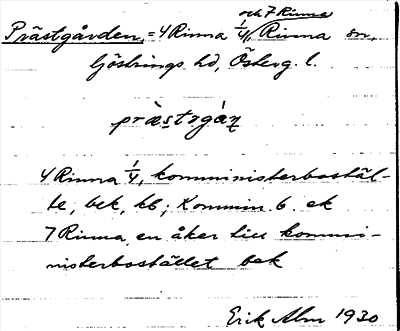 och 7 Rinna
Prästgården, = 4 Rinna 1/4, Rinna sn,
Göstrings hd, Österg. l.
prästgán
4 Rinna 1/4, komministerbostäl-
le, bek, kb; Kommin. b. ek
7 Rinna, en åker till kommi-
nisterbostället bek
Erik Alm 1930